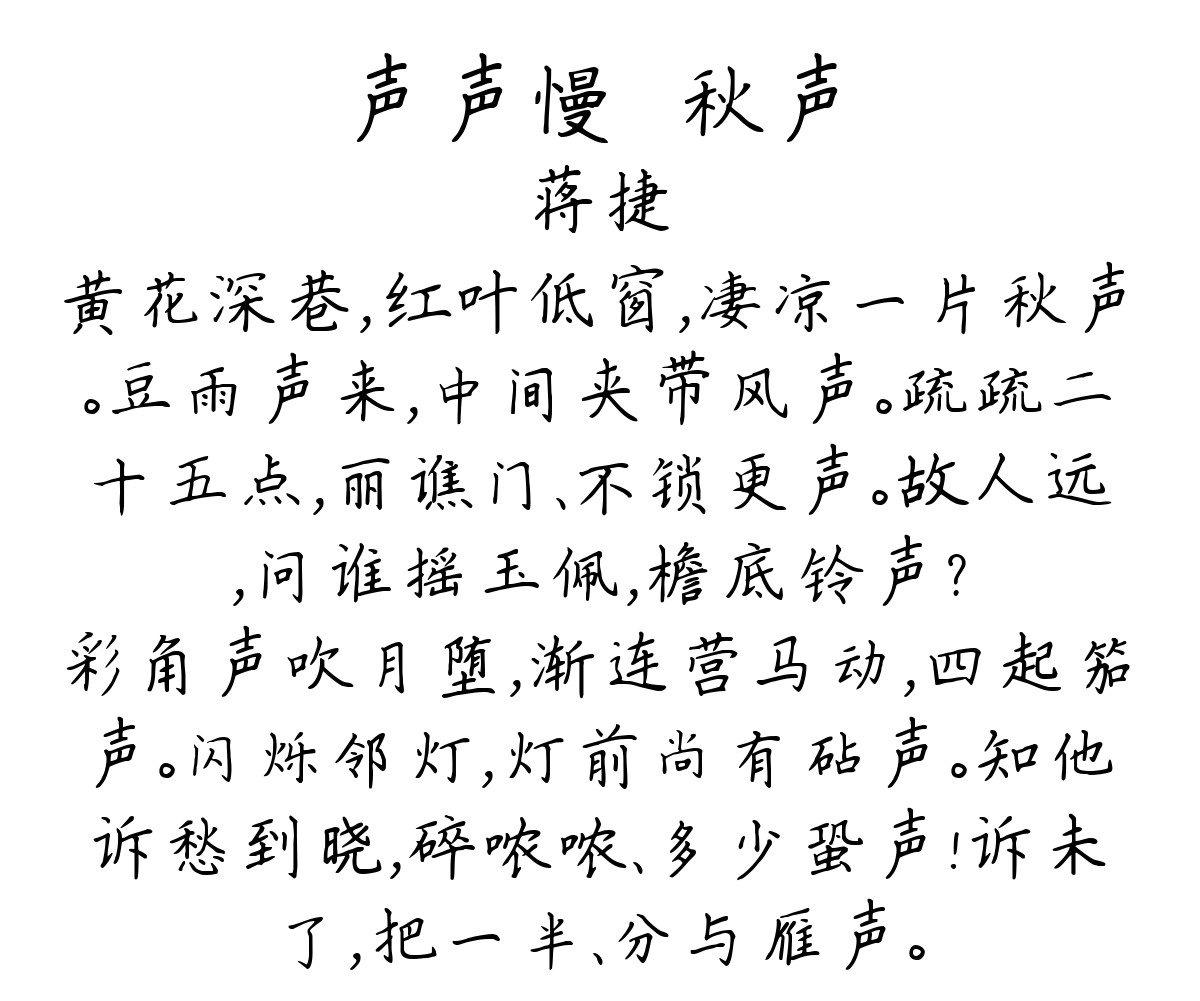 声声慢 秋声
蒋捷
黄花深巷,红叶低窗,凄凉一片秋声
。豆雨声来,中间夹带风声。疏疏二
十五点,丽谯门、不锁更声。故人远
,问谁摇玉佩,檐底铃声?
彩角声吹月堕,渐连营马动,四起笳
声。闪烁邻灯,灯前尚有砧声。知他
诉愁到晓,碎哝哝、多少蛩声!诉未
了,把一半、分与雁声。